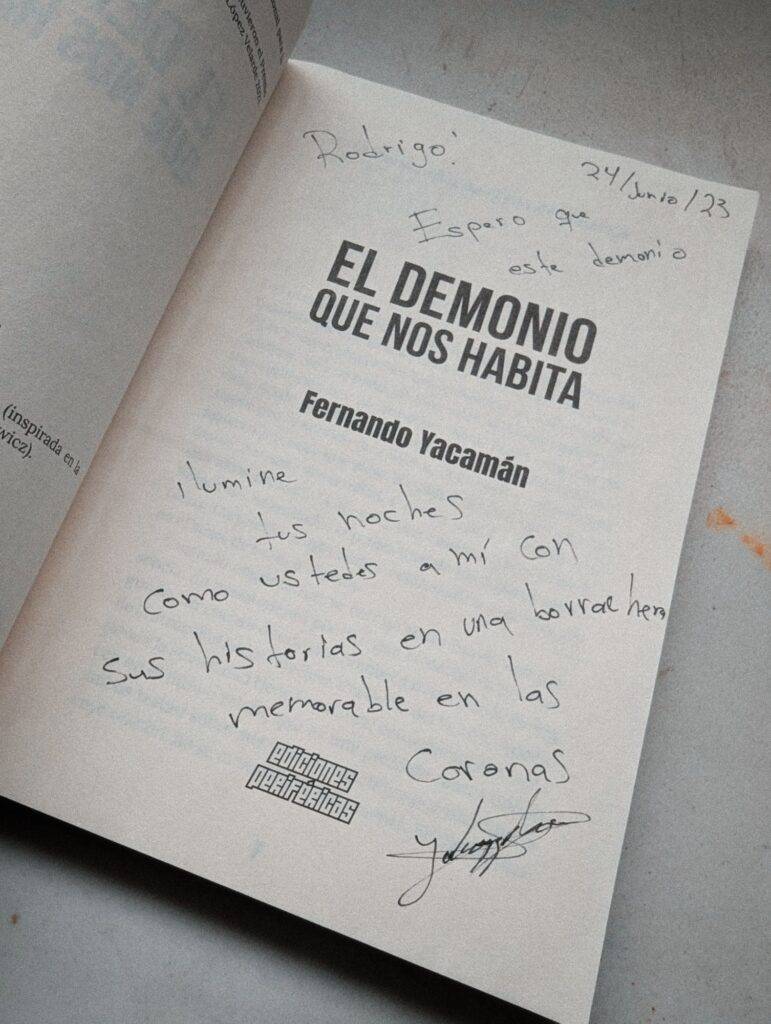 López Velarde
(inspirada en la
wicz).
Rodrigo:
24/Junio/23
Espero que
este demonio
EL DEMONIO
QUE NOS HABITA
Fernando Yacamán
ilumine
tus noches
como ustedes a mí con
sus historias en una borrachera
memorable en las
Coronas
ediciones
periféricas